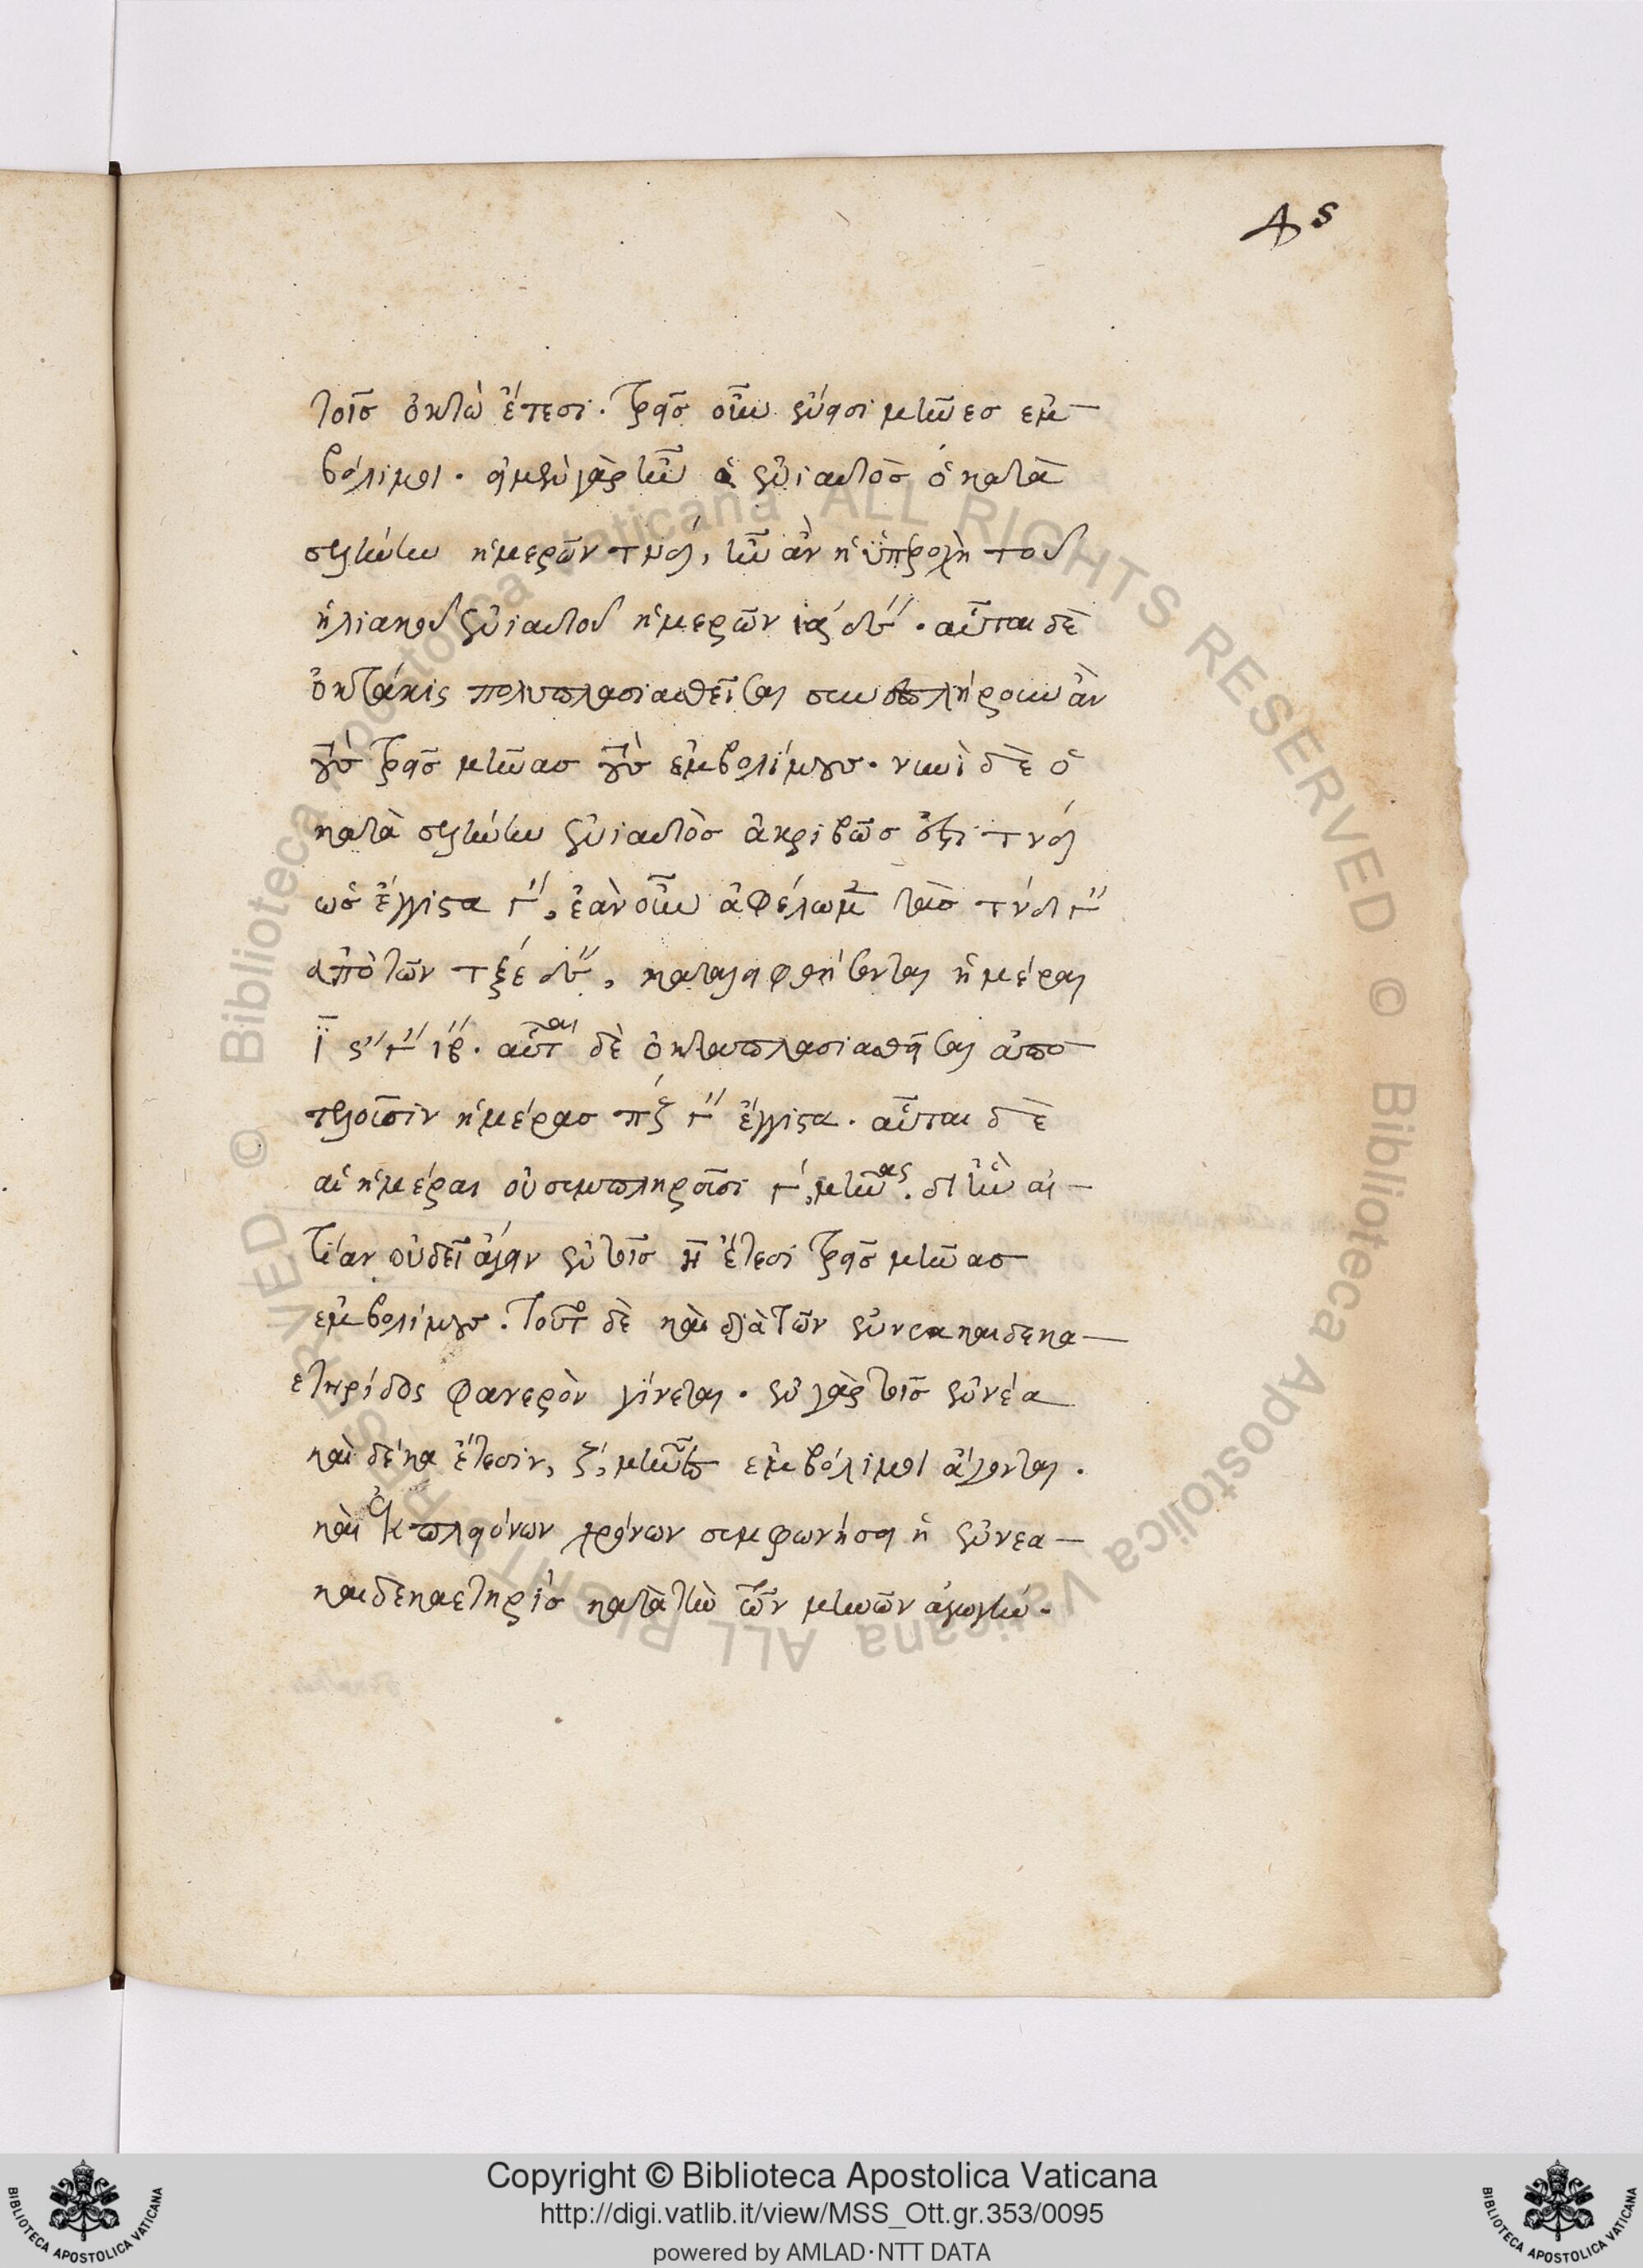 45
τοῖς ὀκτὼ ἔτεσι. τρεῖς οὖν εἰσι μῆνες ἐμ-
βόλιμοι. εἰ μὲν γὰρ ἦν ὁ ἐνιαυτὸς ὁ κατὰ
σελήνην ἡμερῶν τνδ, ἦν ἂν ἡ ὑπεροχὴ τοῦ
ἡλιακοῦ ἐνιαυτοῦ ἡμερῶν ια δ´´. αὗται δὲ
ὀκτάκις πολυπλασιασθεῖσαι συνεπλήρουν ἂν
τοὺς τρεῖς μῆνας τοὺς ἐμβολίμους. νυνὶ δὲ ὁ
κατὰ σελήνην ἐνιαυτὸς ἀκριβῶς ἐστι τνδ
ὡς ἔγγιστα γ´´, ἐὰν οὖν ἀφέλωμεν τὰς τνδ γ´´
ἀπὸ τῶν τξε δ´´, καταλειφθήσονται ἡμέραι
ϊ ς´´ γ´´ ιβ´´. αὗται δὲ ὀκταπλασιασθεῖσαι ἀπο-
τελοῦσιν ἡμέρας πζ γ´´ ἔγγιστα. αὗται δὲ
αἱ ἡμέραι οὐ συμπληροῦσι γ, μῆνας. δι' ἣν αἰ-
τίαν οὐ δεῖ ἄγειν ἐν τοῖς η ἔτεσι τρεῖς μῆνας
ἐμβολίμους. τοῦτο δὲ καὶ διὰ τῶν ἐννεακαιδεκα-
ετηρίδος φανερὸν γίνεται. ἐν γὰρ τοῖς ἐννέα
καὶ δέκα ἔτεσιν, ζ, μῆνες ἐμβόλιμοι ἄγονται.
καὶ ἐκ πλειόνων χρόνων συμφωνήσει ἡ ἐννεα-
καιδεκαετηρὶς κατὰ τὴν τῶν μηνῶν ἀγωγήν.
Copyright © Biblioteca Apostolica Vaticana
http://digi.vatlib.it/view/MSS_Ott.gr.353/0095
powered by AMLAD·NTT DATA
BIBLIOTECA APOSTOLICA VATICANA
BIBLIOTECA APOSTOLICA VATICANA
© Biblioteca Apostolica Vaticana ALL RIGHTS RESERVED © Biblioteca Apostolica Vaticana ALL RIGHTS RESERVED